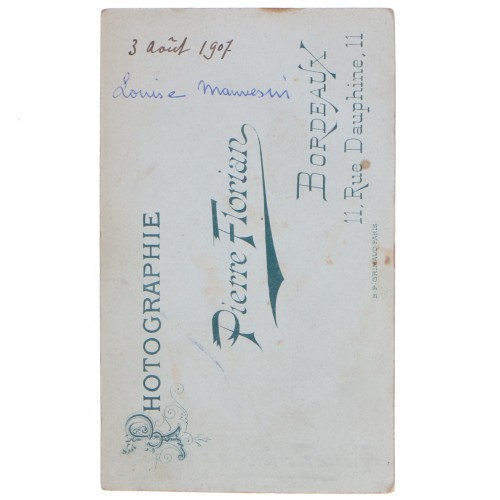 3 Août 1907
Louise
PHOTOGRAPHIE
Pierre Florian
BORDEAUX
11, Rue Dauphine, 11